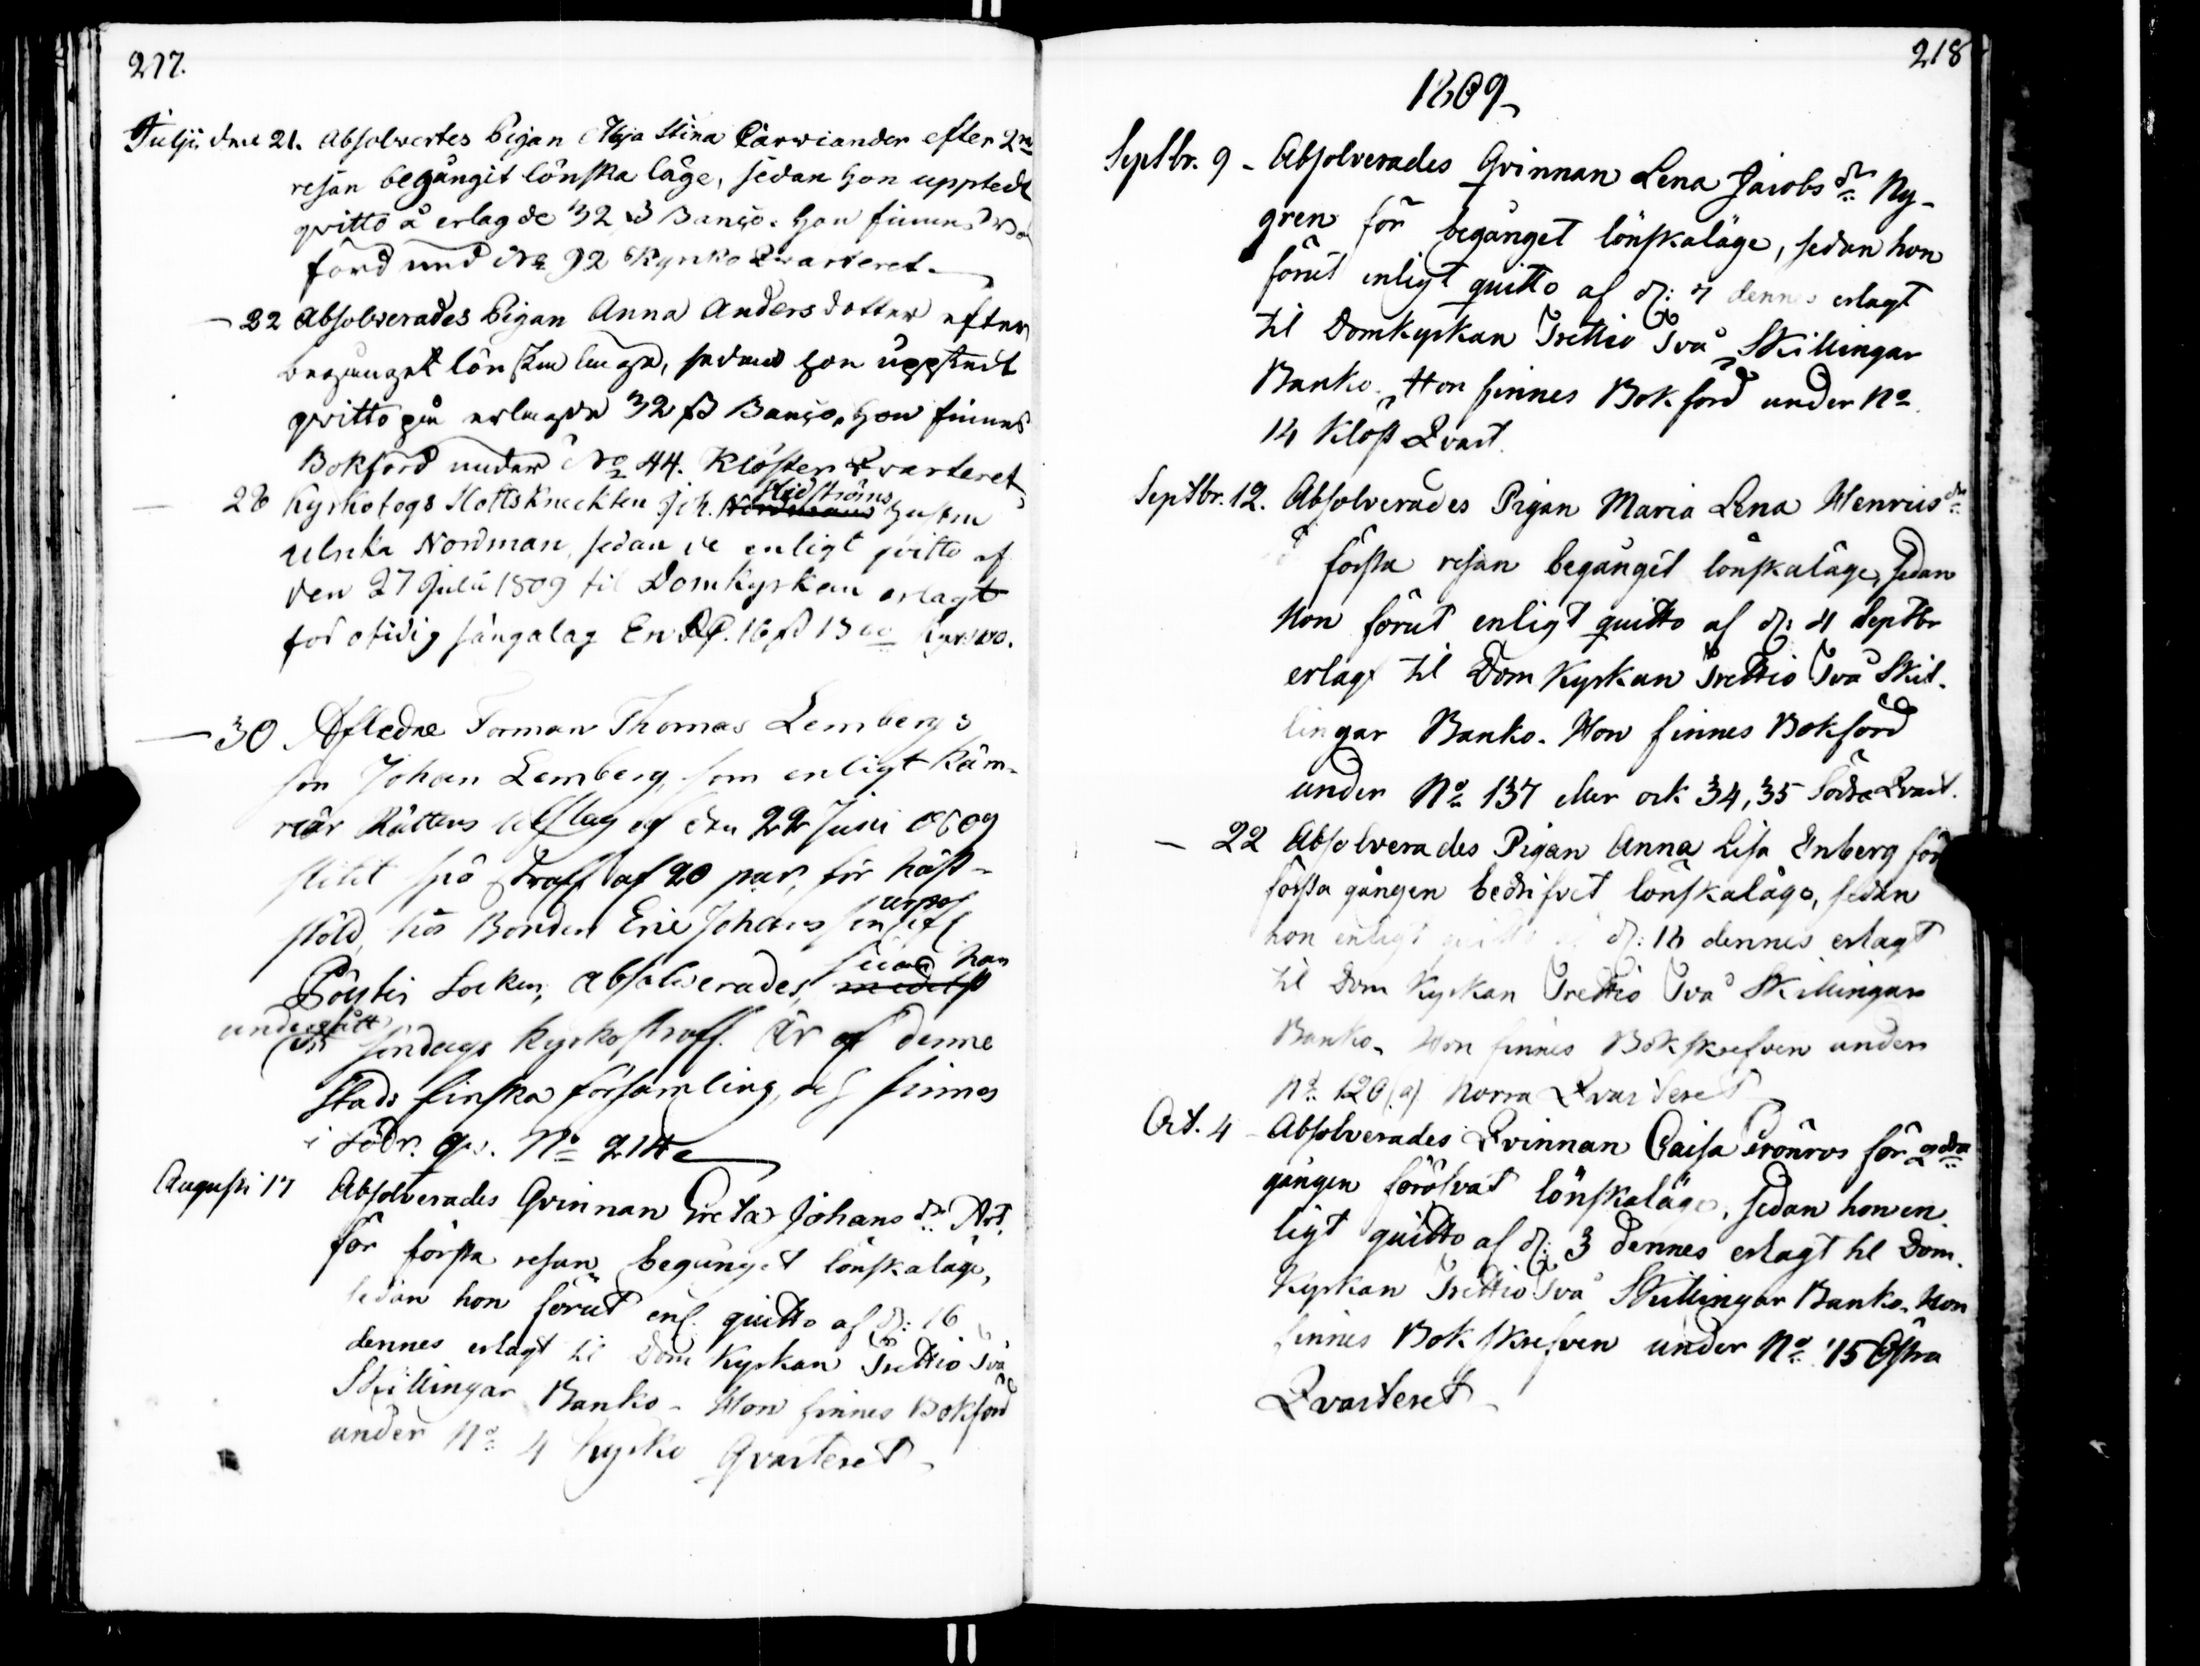 217.
Julii den 21. Absolvertes Pigan Maja Stina Pärviander efter 2ra
resan begångit lönska läge, sedan hon uppteedt
qvitto å erlagde 32 ß Banco. Hon finnes Bok
förd und No 92 Kyrko Qvarteret.
— 22 Absolverades Pigan Anna Andersdotter efter
begånget lönska läge, sedan hon uppteedt
qvitto på erlagde 32 ß Banco. Hon finnes
Bokförd under No 44. Kloster Qvarteret
— 28 Kyrkotogs SlottsKneckten Joh. Nordmans Hedströms hustru
Ulrika Nordman, sedan de enligt qvitto af
den 27 Julii 1809 til Domkyrkan erlagt
för otidig sängalag En RD. 16 ß B co
— 30 Afledne Forman Thomas Lembergs
son Johan Lemberg, som enligt Käm-
närs Rättens utslag af den 22 Junii 1809
slitit spö straff af 20 par, för häst-
stöld, hos Bonden Eric Johansson uppå
Pöytis Socken, Absolverades, medelst sedan han
undergått en söndags Kyrkostraff. Är af denne
Stads finska församling, och finnes
i Södr. qv. No 214
Augusti 17 Absolverades Qvinnan Greta Johans dr Art.
för första resan begånget lönskaläge,
sedan hon förut enl. quitto af d: 16
dennes erlagt til Dom Kyrkan Trettio Två
Skillingar Banko. Hon finnes Bokförd
under No 4 Kyrko Qvarteret
218
1809
Septbr. 9 - Absolverades Qvinnan Lena Jacobs dr Ny-
gren för begånget lönskaläge, sedan hon
förut enligt quitto af d: 7 dennes erlagt
til Domkyrkan Trettio Två Skillingar
Banko. Hon finnes Bokförd under No
14 Klost Qvart.
Septbr. 12. Absolverades Pigan Maria Lena Henrics dr
första resan begångit lönskaläge, sedan
Hon förut enligt quitto af d: 11 Septbr
erlagt til Dom Kyrkan Trettio Två Skil-
lingar Banko. Hon finnes Bokförd
under No 137 eller ock 34, 35 Södra Qvart.
— 22 Absolverades Pigan Anna Lisa Enberg för
första gången bedrifvet lönskaläge, sedan
hon enligt quitto af d: 14 dennes erlagt
til Dom Kyrkan Trettio Två Skillingar
Banko. Hon finnes Bokskrefven under
No 120 (a) Norra Qvarteret
Oct. 4 - Absolverades Qvinnan Caisa Grönros för andra
gången föröfvat lönskaläge, sedan hon en-
ligt quitto af d: 3 dennes erlagt til Dom-
Kyrkan Trettio Två Skillingar Banko. Hon
finnes Bok skrefven under No 15 Östra
Qvarteret